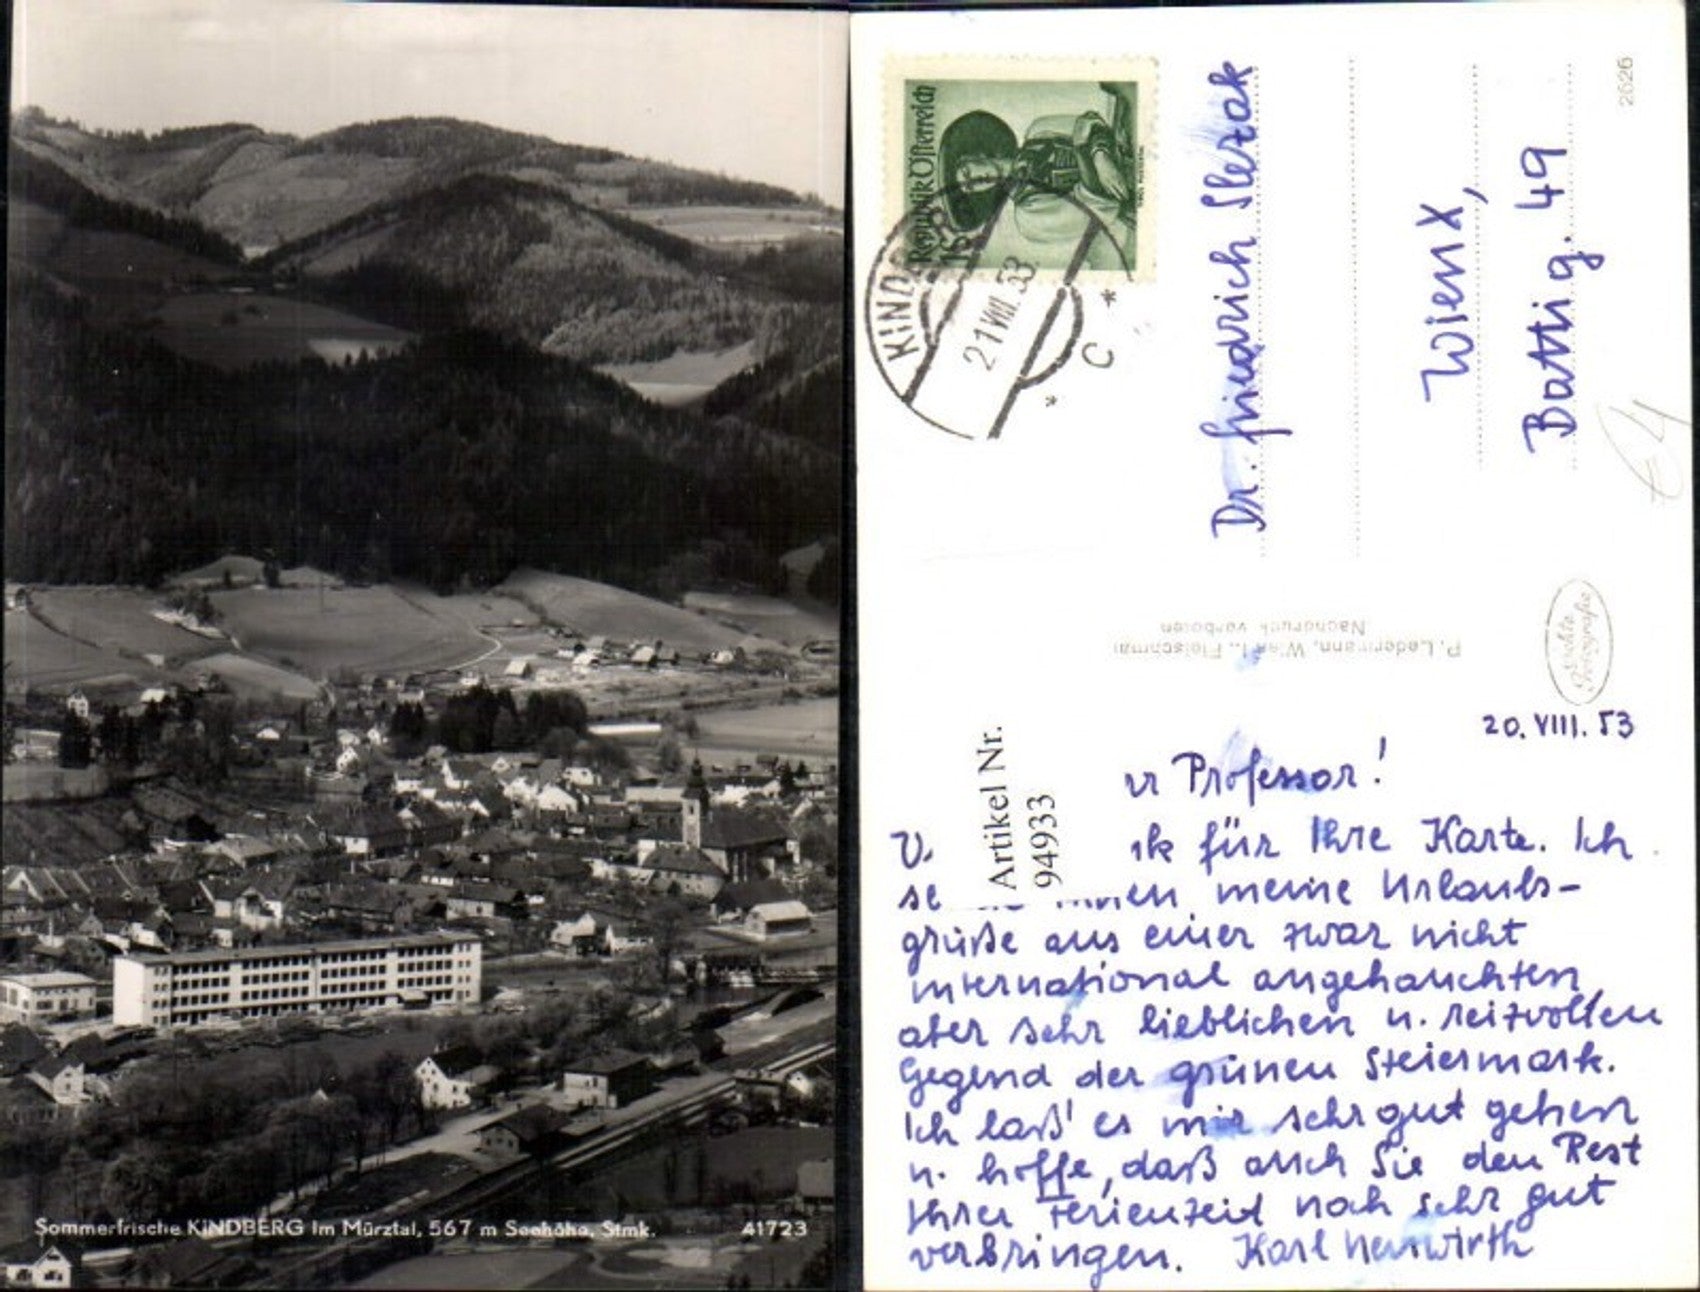 Sommerfrische KINDBERG im Mürztal, 567 m Seehöhe, Stmk. 41723
Republik Österreich
1S
KINDBERG
21.VIII.53
* C *
Dr. Friedrich Slezak
Wien X,
Battig. 49
2626
€4
P. Ledermann, Wien I., Fleischmar
Nachdruck verboten
Echte Fotografie
Artikel Nr.
94933
20. VIII. 53
r Professor!
V. nk für Ihre Karte. Ich
se Ihnen meine Urlaubs-
grüße aus einer zwar nicht
international angehauchten,
aber sehr lieblichen u. reizvollen
Gegend der grünen Steiermark.
Ich laß' es mir sehr gut gehen
u. hoffe, daß auch Sie den Rest
Ihrer Ferienzeit noch sehr gut
verbringen. Karl Neuwirth